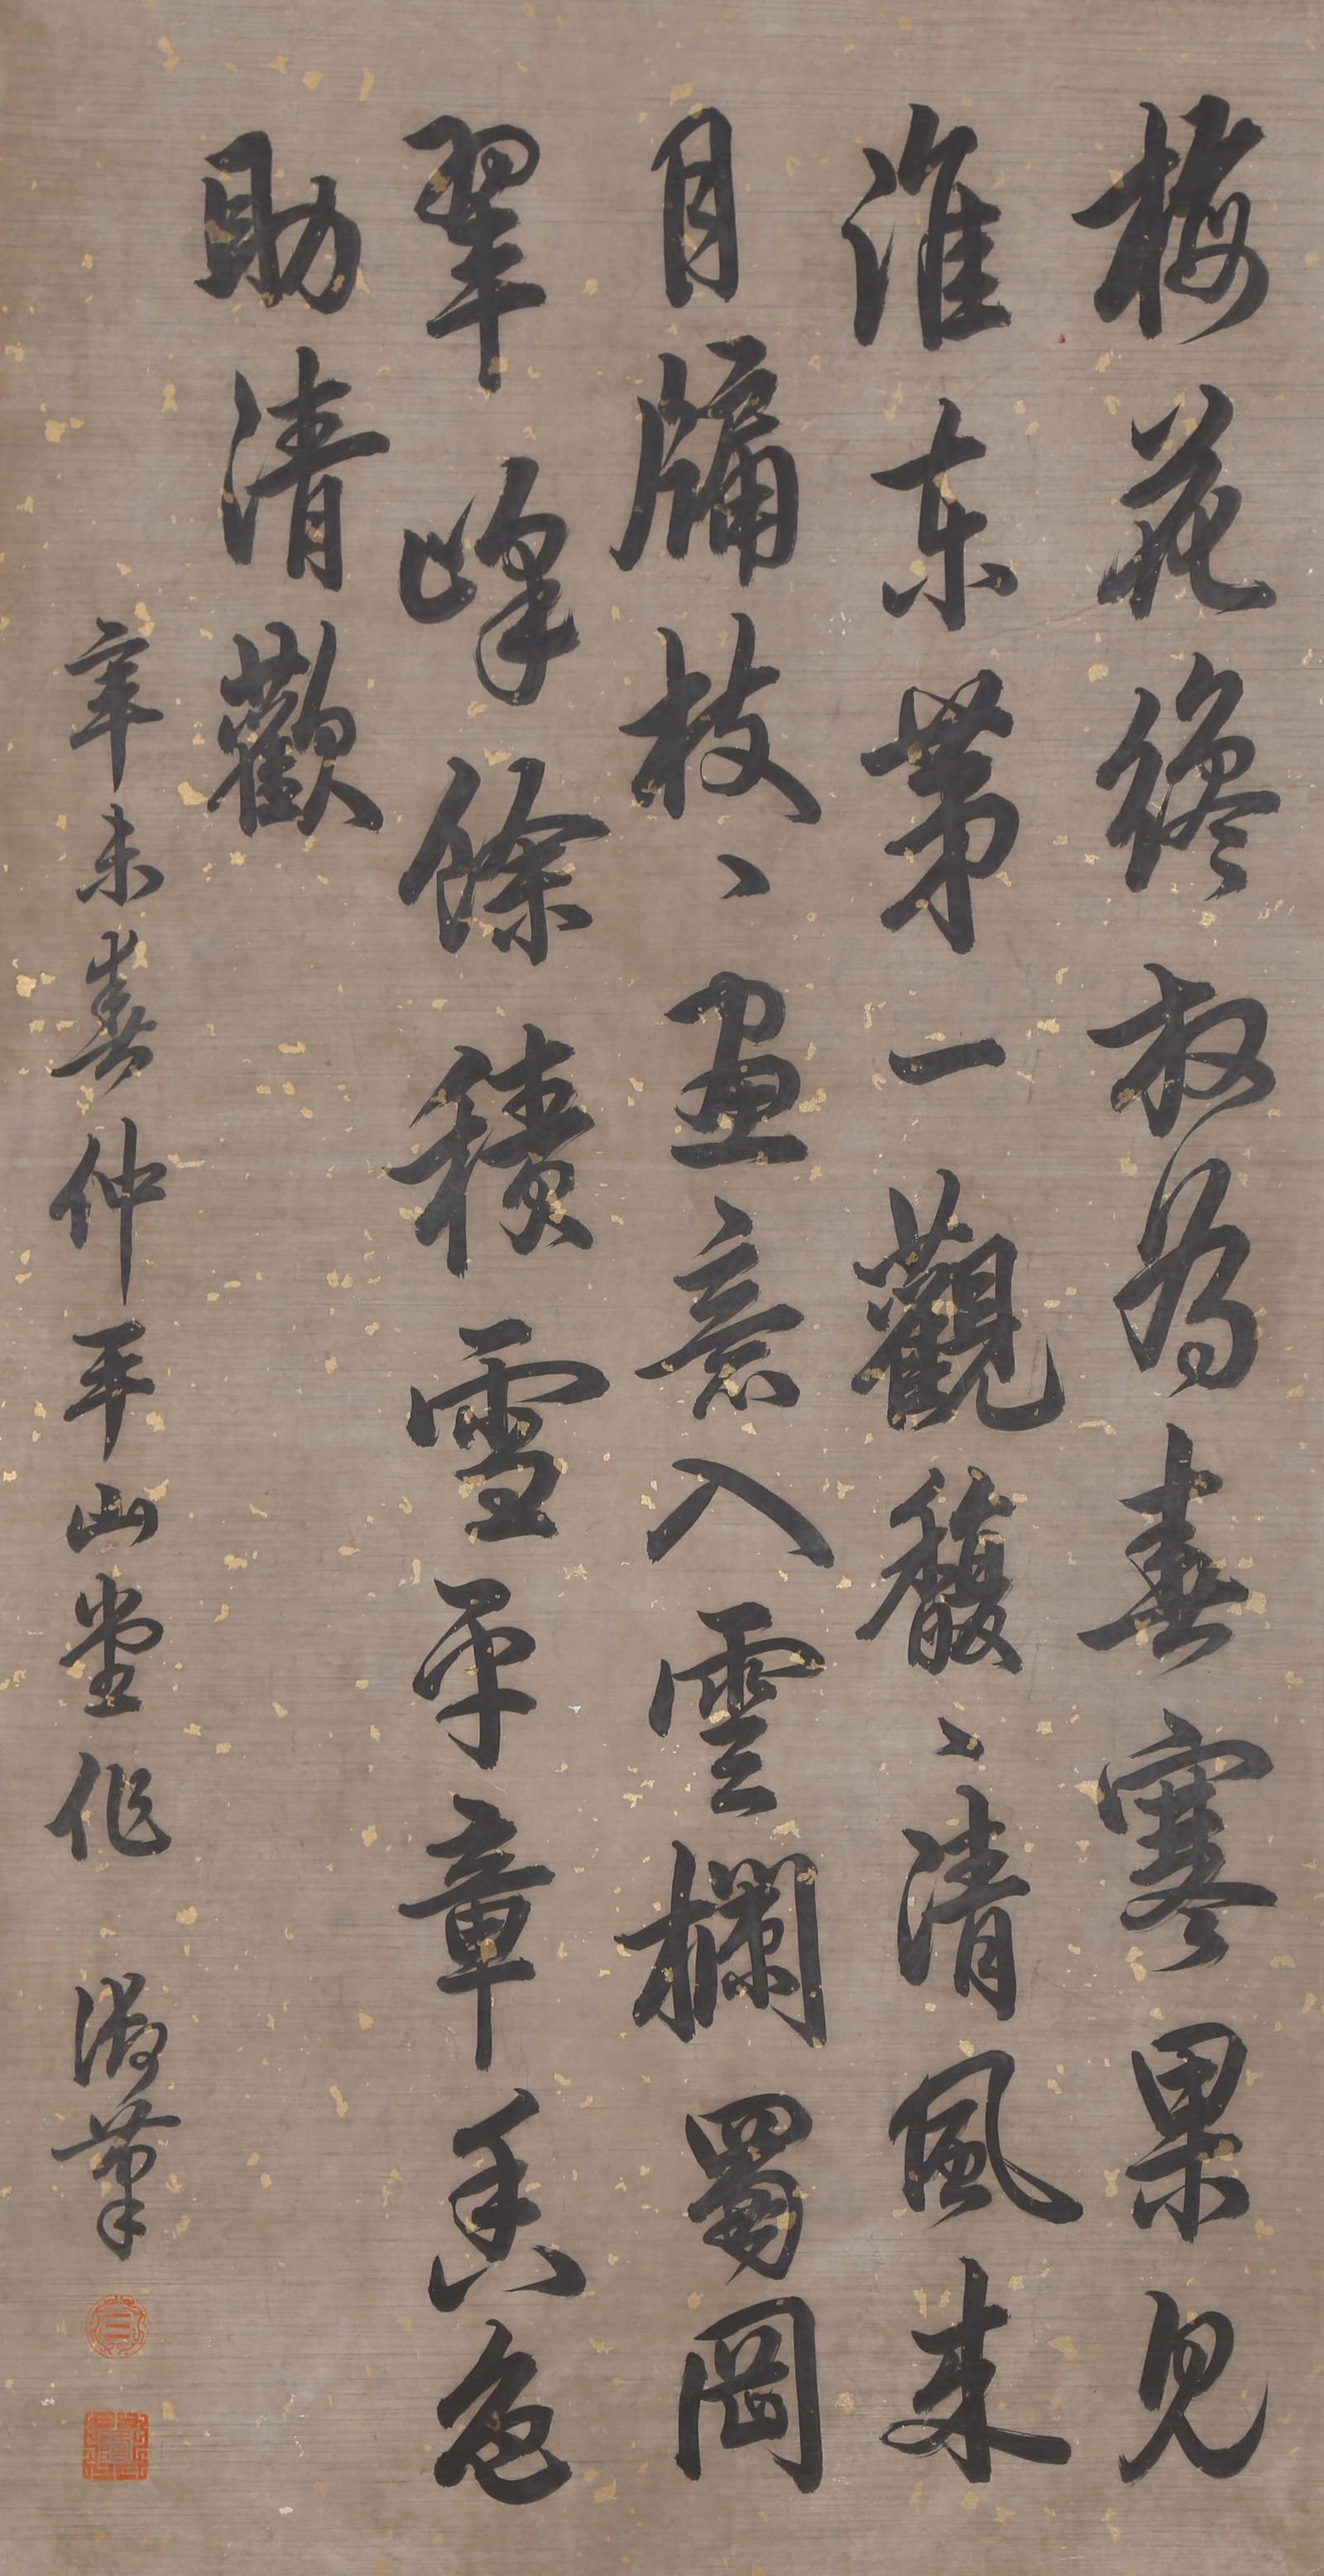 梅花終放為春寒果見
淮東第一觀馥〻清風來
月牖枝〻畫意入雲欄蜀岡
翠峰餘積雪平章香色
助清歡
辛未春仲平山堂作
御筆